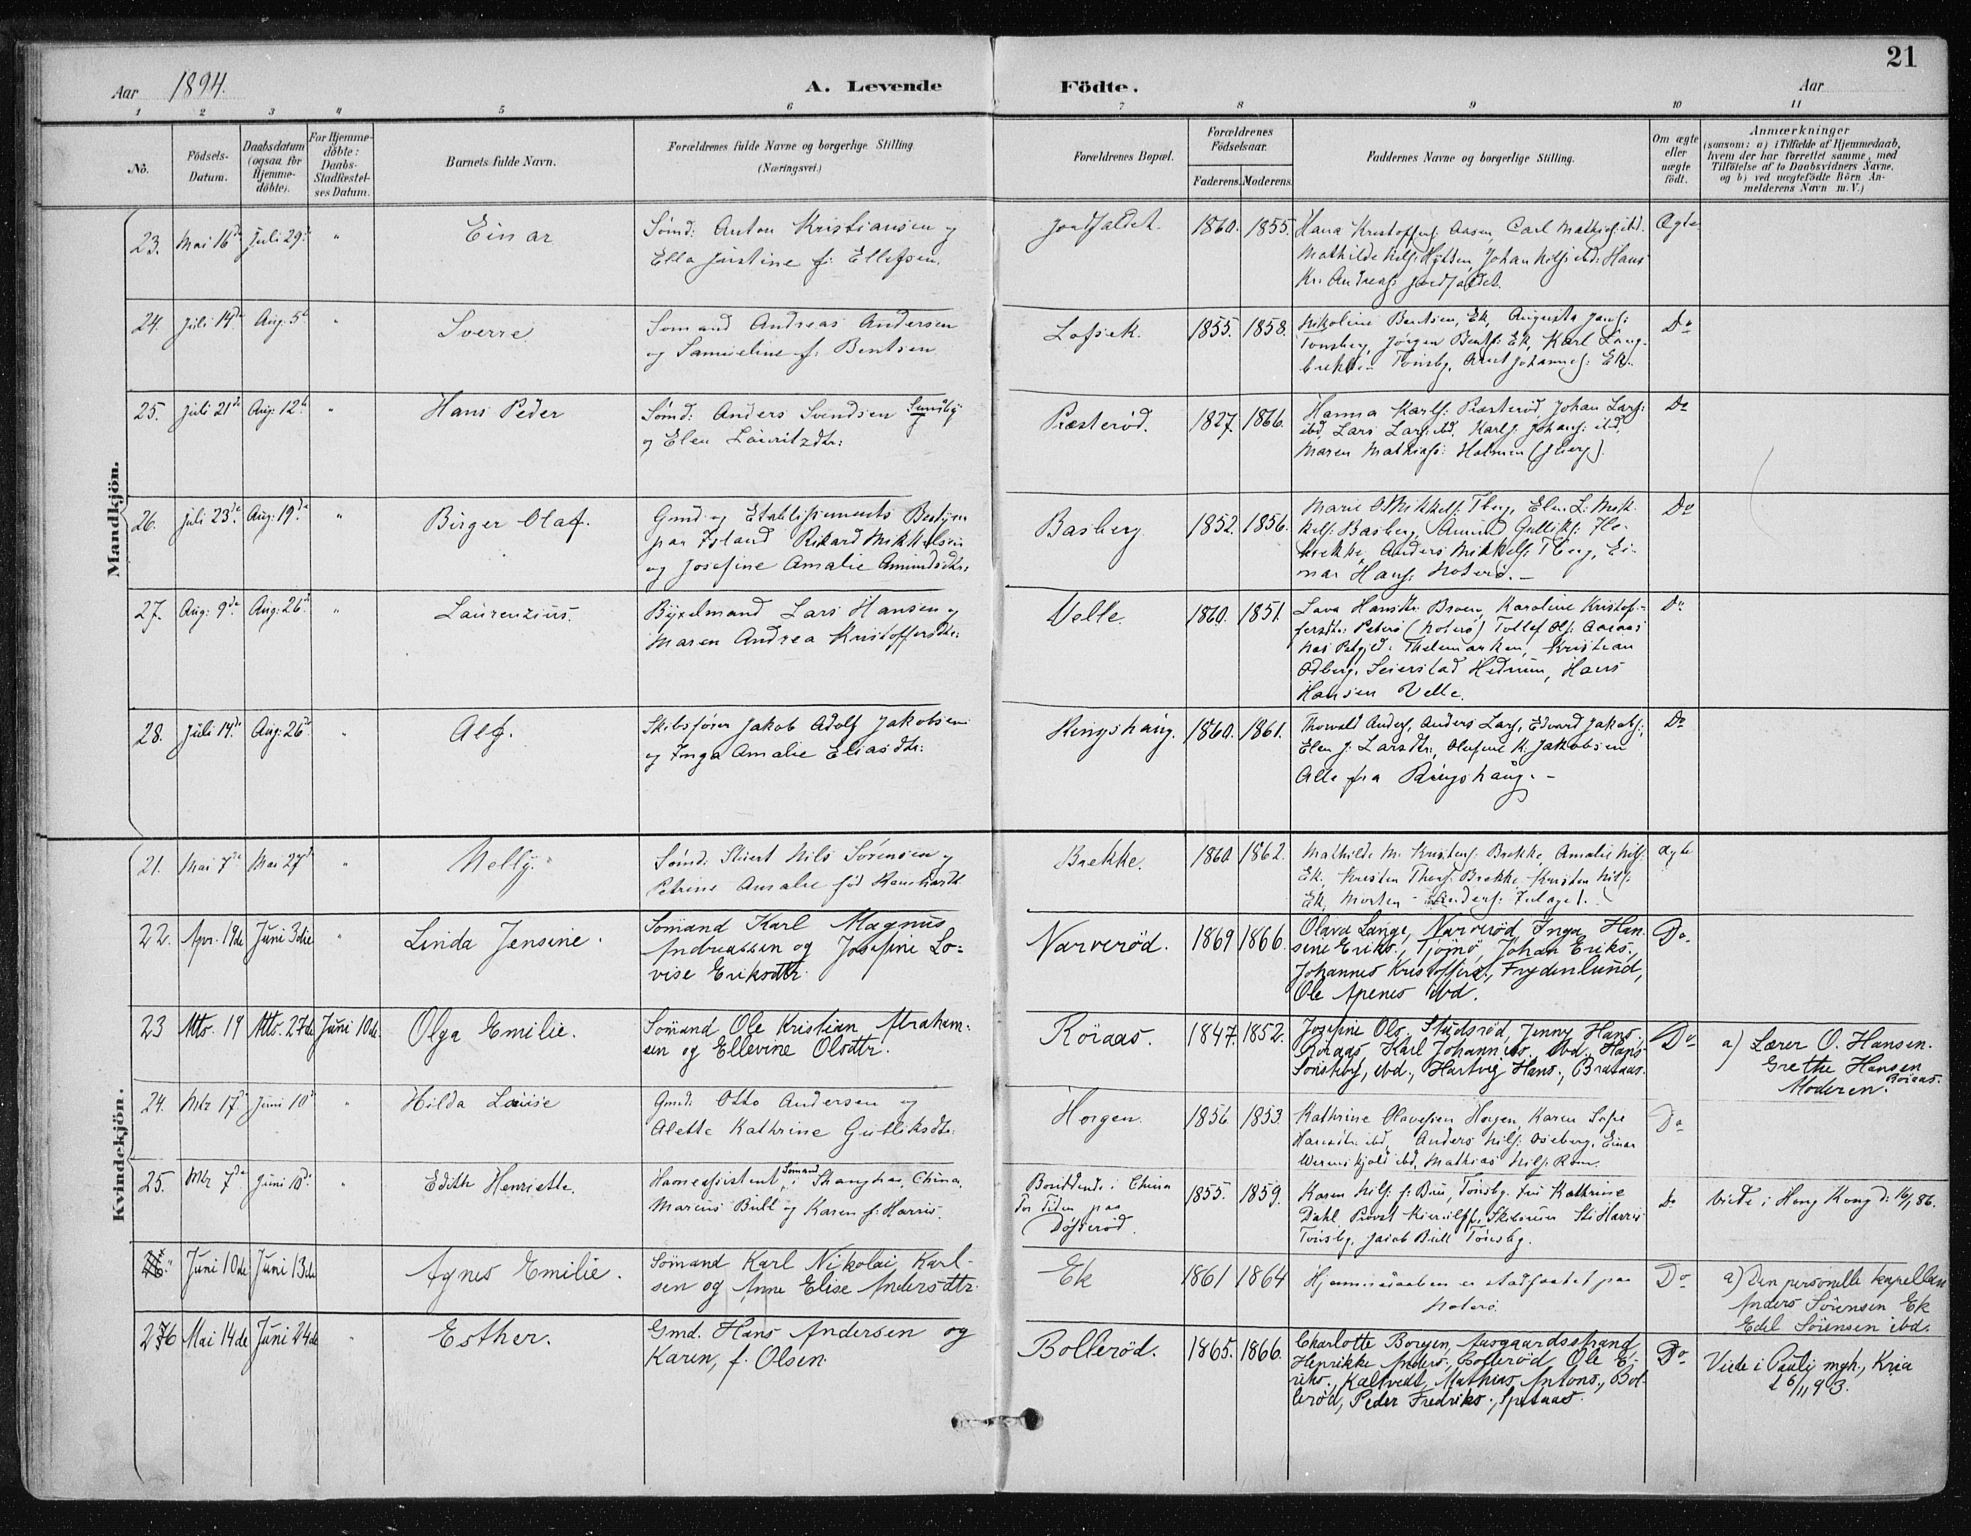 21
Aar 1894. A. Levende Födte. Aar
1 2 3 4 5 6 7 8 9 10 11
No.
Födsels-
Datum.
Daabsdatum
(ogsaa for
Hjemme-
döbte).
For Hjemme-
döbte:
Daabs-
Stadfæstel-
ses Datum.
Barnets fulde Navn.
Forældrenes fulde Navne og borgerlige Stilling
(Næringsvei.)
Forældrenes Bopæl.
Forældrenes
Födselsaar.
Faderens. Moderens.
Faddernes Navne og borgerlige Stilling.
Om ægte
eller
uægte
födt.
Anmærkninger
(saasom: a) i Tilfælde af Hjemmedaab,
hvem der har forrettet samme, med
Tilföielse af to Daabsvidners Navne,
og b) ved uægtefödte Börn An-
melderens Navn m. V.)
Mandkjön.
23. Mai 16de Juli 29de " Einar
Sömd: Anton Kristiansen og
Ella Justine f: Ellefsen.
Jordfaldet. 1860. 1855.
Hana Kristoffers: Aasen, Carl Mathis: ibd.
Mathilde Nils: Hytten, Johan Nils: ibd. Hans
Kr. Andreas: Jordfaldet.
Ægte
24. Juli 14de Aug. 5te " Sverre
Sömand Andreas Andersen
og Samueline f: Bentsen
Lofsek. 1855. 1858.
Nikoline Bentsen, Ek, Augusta Jans:
Tönsberg, Jörgen Bents: Ek, Karl
Tönsbg, Johannes: Ek.
Do
25. Juli 21de Aug. 12te " Hans Peder
Sömd: Anders Svendsen
og Elen Lauritzdtr:
Præsteröd. 1827. 1866.
Hanna Karls: Præsteröd, Johan Lars:
ibd, Lars Lars: ibd, Karl Johans: ibd,
Maren Mathias: Holmen
Do
26. Juli 23de Aug. 19de " Birger Olaf.
Gmd og Etablissements Bestyr
paa Island Rikard Mikkelsen
og Josefine Amalie Amundsdtr:
Basberg 1852. 1856.
Marie Mikkels: Tberg, Elen L: Mik
kels: Basberg, Amund Gulliks:
Anders Mikkels: Tberg, Ei-
nar Hans: Noterö. -
Do
27. Aug: 9de Aug: 26de " Laurenzius.
Byxelmand Lars Hansen og
Maren Andrea Kristoffersdtr:
Velle. 1860. 1851.
Lava Hansdtr: Broen, Karoline Kristof-
fersdtr: Peterö (Noterö) Tollef Ols:
Thelemarken, Kristian
Odberg, Seierstad Hedrum, Hans
Hansen Velle.
Do
28. Juli 14de Aug: 26de " Alf.
Skibsförer Jakob Adolf Jakobsen
og Inga Amalie Eliasdtr:
Ringshaug. 1860. 1861.
Thorvald Anders, Anders Lars, Edvard Jakobs:,
Elen J: Larsdtr:, Olefine K. Jakobsen
Alle fra Ringshaug. -
Do
Kvindekjön.
21. Mai 7de Mai 27de " Nelly.
Sömd: Stuert Nils Sörensen og
Petrine Amalie föd
Brekke. 1860 1862.
Mathilde M. Kristens: Brekke, Amalie Nils:
Ek, Kristen Thors: Brekke, Kristen Nils:
Ek, Morten Anders:
Ægte
22. Apr. 19de Juni 3die " Linda Jensine.
Sömand Karl Magnus
Andreassen og Josefine Lo=
vise Eriksdtr.
Narveröd. 1869 1866.
Olava Lange, Narveröd, Inga Han-
sine Eriks., Tjömö, Johan Eriks.,
Johannes Kristoffers., Frydenlund,
Ole Apenes ibd.
Do
23 Mts. 19 Mts. 27de Juni 10de. Olga Emilie.
Sömand Ole Kristian Abraham-
sen og Ellevine Olsdtr.
Röraas. 1847. 1852.
Josefine Ols., Studsröd, Jenny Hans.
Röraas Karl Johannes. ibd., Hans
Sönsteby, ibd., Hartvig Hans., Brataas.
Do
a) Lærer O. Hansen.
Grethe Hansen
Röraas.
Moderen.
24. Mts 17de Juni 10de " Hilda Louise
Gmd: Otto Andersen og
Alette Kathrine Gulliksdtr.
Horgen. 1856. 1853.
Kathrine Olavesen Horgen, Karen Sofie
Hansdtr. ibd, Anders Nils: Oseberg, Einar
Werenskjold ibd, Mathias Nils: Rom.
Do
25. Mts 7de Juni 10de " Edith Henriette.
Havneassistent, Sömand i Shanghai, China,
Marius Bull og Karen f: Harris.
Boiddende i China
For tiden paa
Döjeröd.
1855. 1859.
Karen Nils: f: Bull, Tönsbg. Fru Kathrine
Dahl, Provst Skibsrum Harris
Tönsbg, Jacob Bull Tönsbg.
Do
Viede i Hong Kong d: 16/1 86.
Juni 10de Juni 13de Agnes Emilie.
Sömand Karl Nikolai Karl-
sen og Anne Elise Andersdtr.
Ek 1861 1864
Hjemmedaaben er stadfæstet paa
Noterö.
Do
a) Den personelle Kapellan
Anders Sörensen Ek
Edel Sörensen ibd.
276 Mai 14de Juni 24de " Esther.
Gmd. Hans Andersen og
Karen, f. Olsen.
Bolleröd. 1865. 1866.
Charlotte Borgen, Aasgaardsstrand,
Henrikke Anders., Bolleröd, Ole E-
riks., Kaltvedt, Mathias Antons., Bol-
leröd, Peder Fredriks.,
Do
Viede i Pauli mgh., Kria
d 6/11 93.